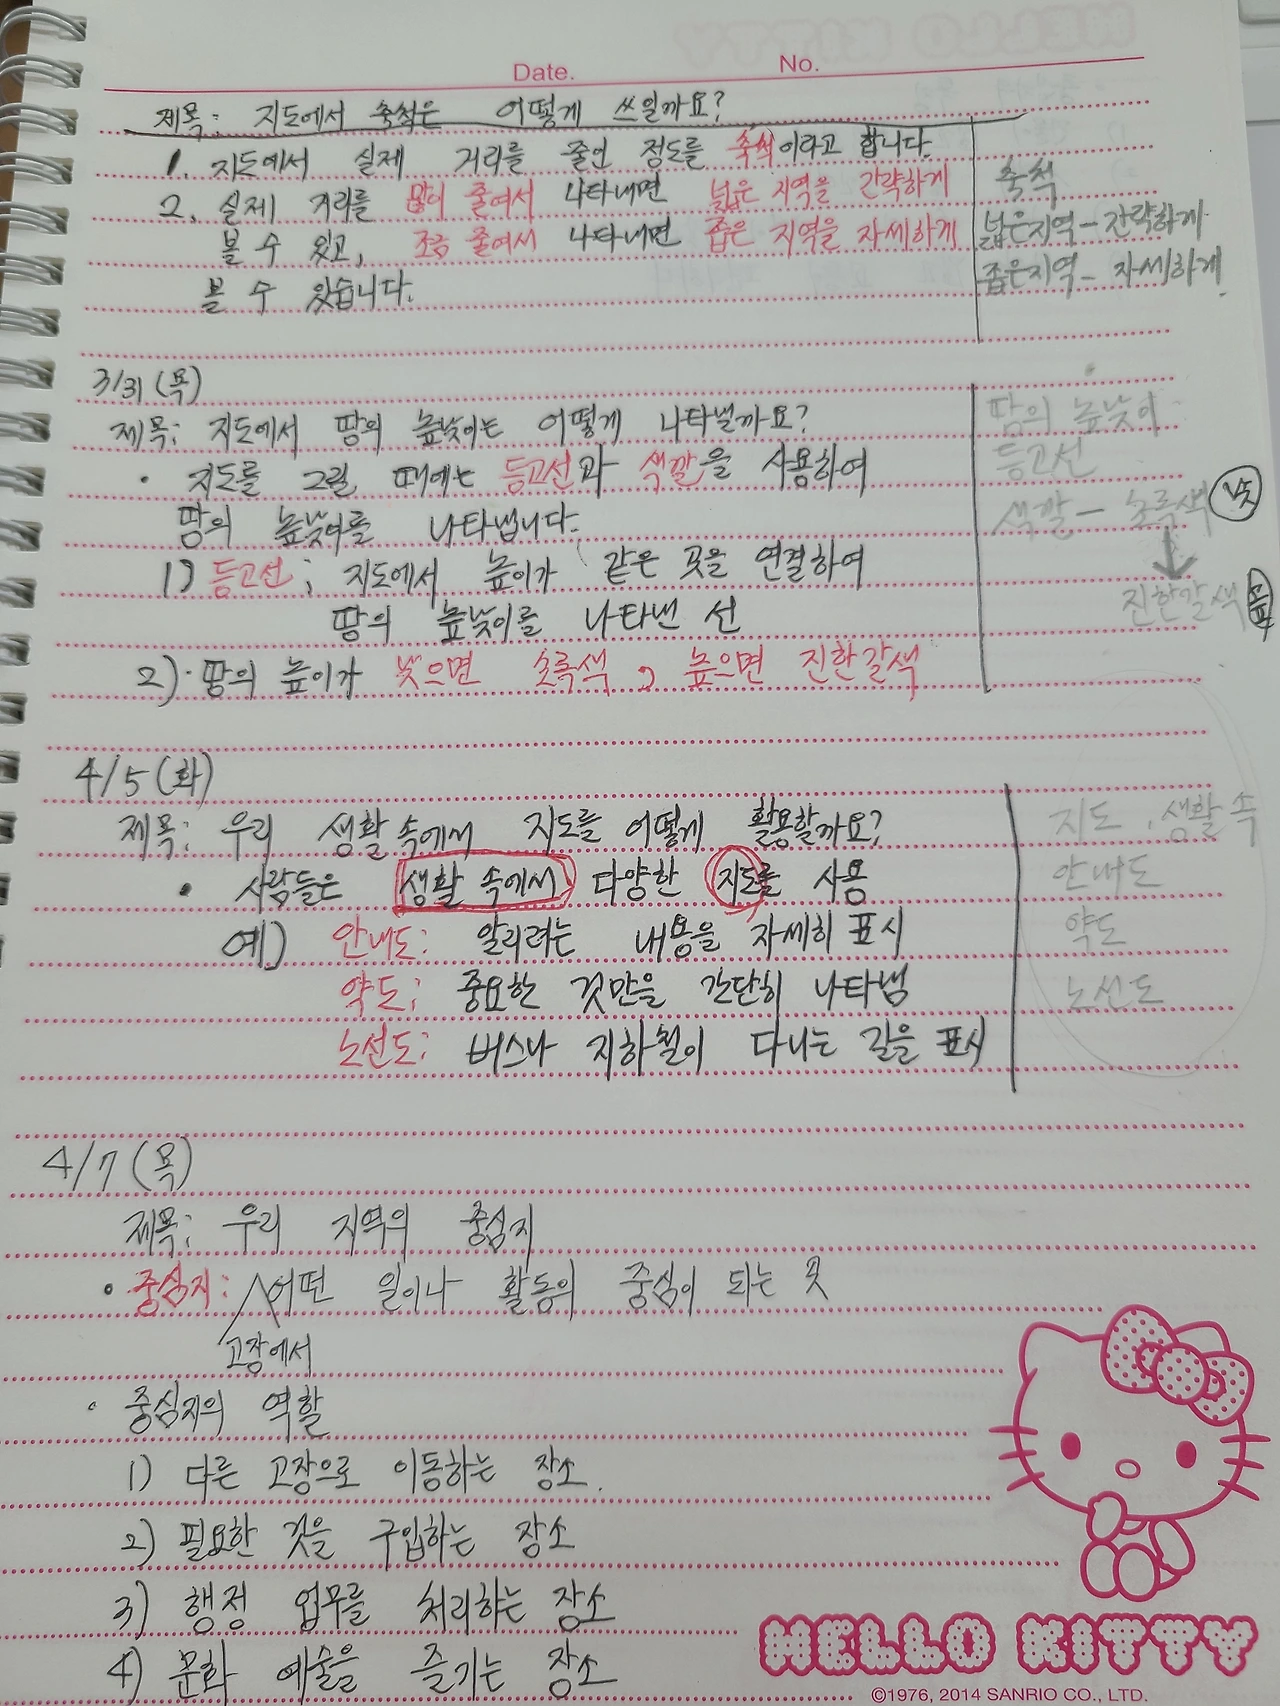 Date. No.
제목: 지도에서 축척은 어떻게 쓰일까요?
1. 지도에서 실제 거리를 줄인 정도를 축척이라고 합니다.
2. 실제 거리를 많이 줄여서 나타내면 넓은 지역을 간략하게
볼 수 있고, 조금 줄여서 나타내면 좁은 지역을 자세하게
볼 수 있습니다.
축척
넓은지역 - 간략하게
좁은지역 - 자세하게
3/31 (목)
제목: 지도에서 땅의 높낮이는 어떻게 나타낼까요?
· 지도를 그릴 때에는 등고선과 색깔을 사용하여
땅의 높낮이를 나타냅니다.
1) 등고선: 지도에서 높이가 같은 곳을 연결하여
땅의 높낮이를 나타낸 선
2) · 땅의 높이가 낮으면 초록색, 높으면 진한갈색
땅의 높낮이
등고선
색깔 - 초록색 낮
↓
진한갈색 높
4/5 (화)
제목: 우리 생활 속에서 지도를 어떻게 활용할까요?
• 사람들은 생활 속에서 다양한 지도를 사용
예) 안내도: 알리려는 내용을 자세히 표시
약도: 중요한 것만을 간단히 나타냄
노선도: 버스나 지하철이 다니는 길을 표시
지도, 생활 속
안내도
약도
노선도
4/7 (목)
제목: 우리 지역의 중심지
• 중심지: 어떤 일이나 활동의 중심이 되는 곳
고장에서
◦ 중심지의 역할
1) 다른 고장으로 이동하는 장소.
2) 필요한 것을 구입하는 장소
3) 행정 업무를 처리하는 장소
4) 문화 예술을 즐기는 장소
HELLO KITTY
©1976, 2014 SANRIO CO., LTD.